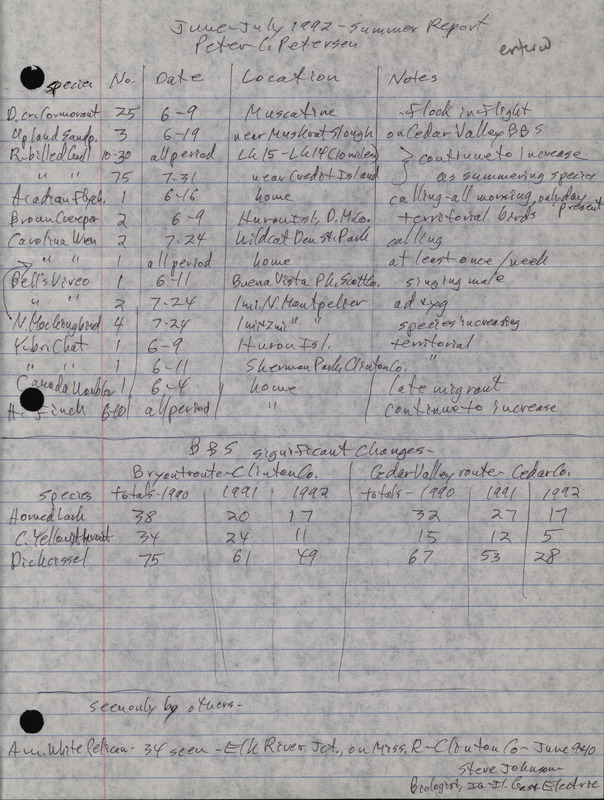 June-July 1992 - Summer Report
Peter C. Petersen
entered
species No. Date Location Notes
D. cr. Cormorant 25 6-9 Muscatine flock in flight
Upland Sandp. 3 6-19 near Muskrat Slough on Cedar Valley BBS
R-billed Gull 10-30 all period L&15-L&14 (10 miles) continue to increase
" " 75 7-31 near Credit Island as summering species
Acadian Flych. 1 6-16 home calling-all morning, only day present
Brown Creeper 2 6-9 Huron Isl., D.M.Co. territorial birds
Carolina Wren 2 7-24 Wildcat Den St. Park calling
" " 1 all period home at least once/week
Bell's Vireo 1 6-11 Buena Vista Pk, Scott Co. singing male
" " 2 7-24 1mi. N. Montpelier ad + yg
N. Mockingbird 4 7-24 1mi + 2mi " " species increasing
Y-br. Chat 1 6-9 Huron Isl. territorial
" " 1 6-11 Sherman Park, Clinton Co. "
Canada Warbler 1 6-4 home late migrant
H. Finch 6-10 all period " continue to increase
BBS significant changes-
Bryant route-Clinton Co. Cedar Valley route-Cedar Co.
species totals-1990 1991 1992 totals-1990 1991 1992
Horned Lark 38 20 17 32 27 17
C. Yellowthroat 34 24 11 15 12 5
Dickcissel 75 61 49 67 53 28
seen only by others-
Am. White Pelican - 34 seen - Elk River Jct., on Miss. R - Clinton Co - June 9+10
Steve Johnson
Biologist, Ia-Il. Gas + Electric